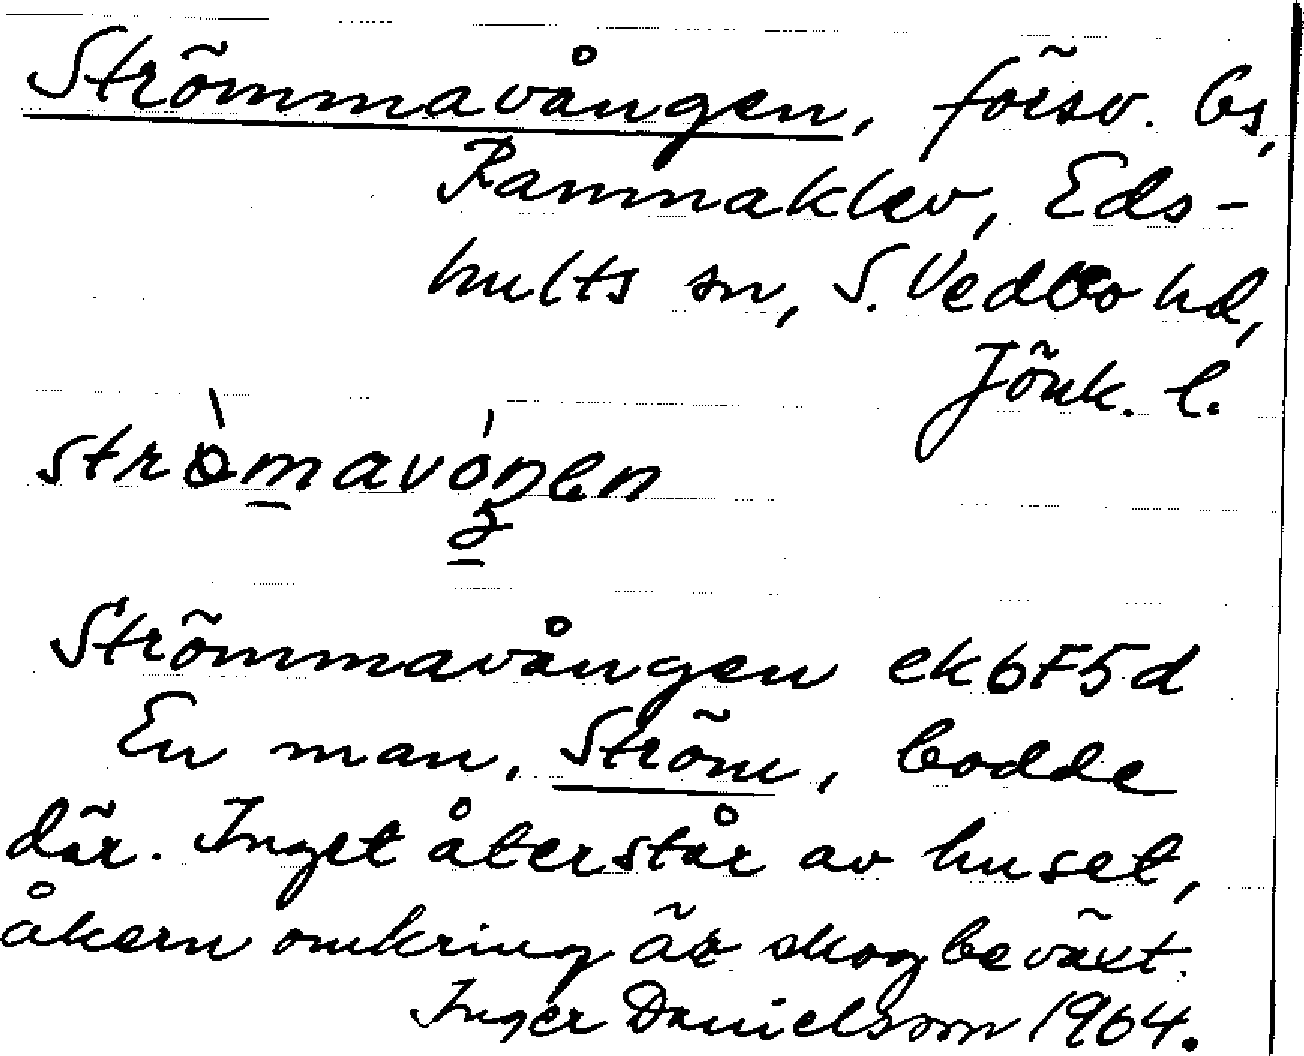 Strömmavången, försv. bs,
Rammaklev, Eds-
hults sn, S. Vedbo hd,
Jönk. l.
strömavóŋen
Strömmavången ek6F5d
En man, Ström, bodde
där. Inget återstår av huset,
åkern omkring är skogbeväxt.
Inger Danielsson 1964.